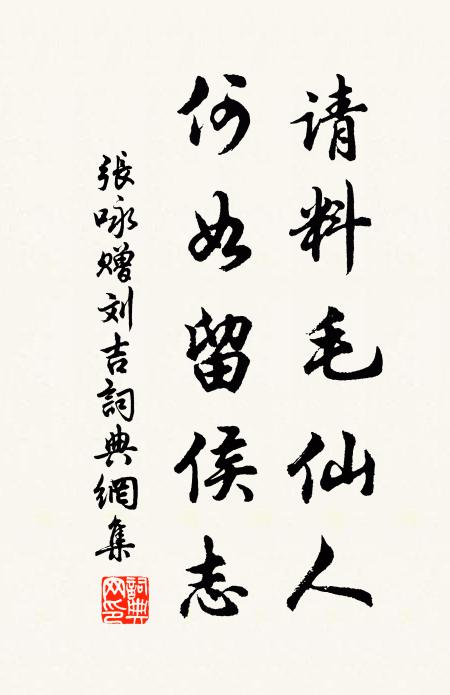 请料毛仙人
何如留侯志
張咏赠刘吉詞典網集
詞典網印